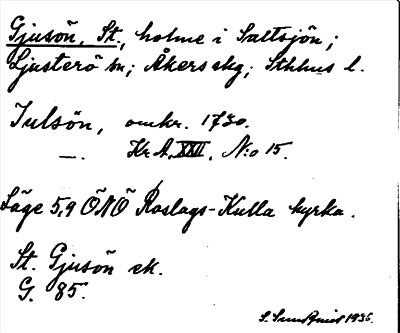 Gjusön, St., holme i Saltsjön;
Ljusterö sn; Åkers skg; Sthlms l.
Julsön, omkr. 1730.
—. Kr. A. XXII. N:o 15.
Läge 5,9 ÖNÖ Roslags-Kulla kyrka.
St. Gjusön ek.
G. 85.
S. Sundquist 1936.